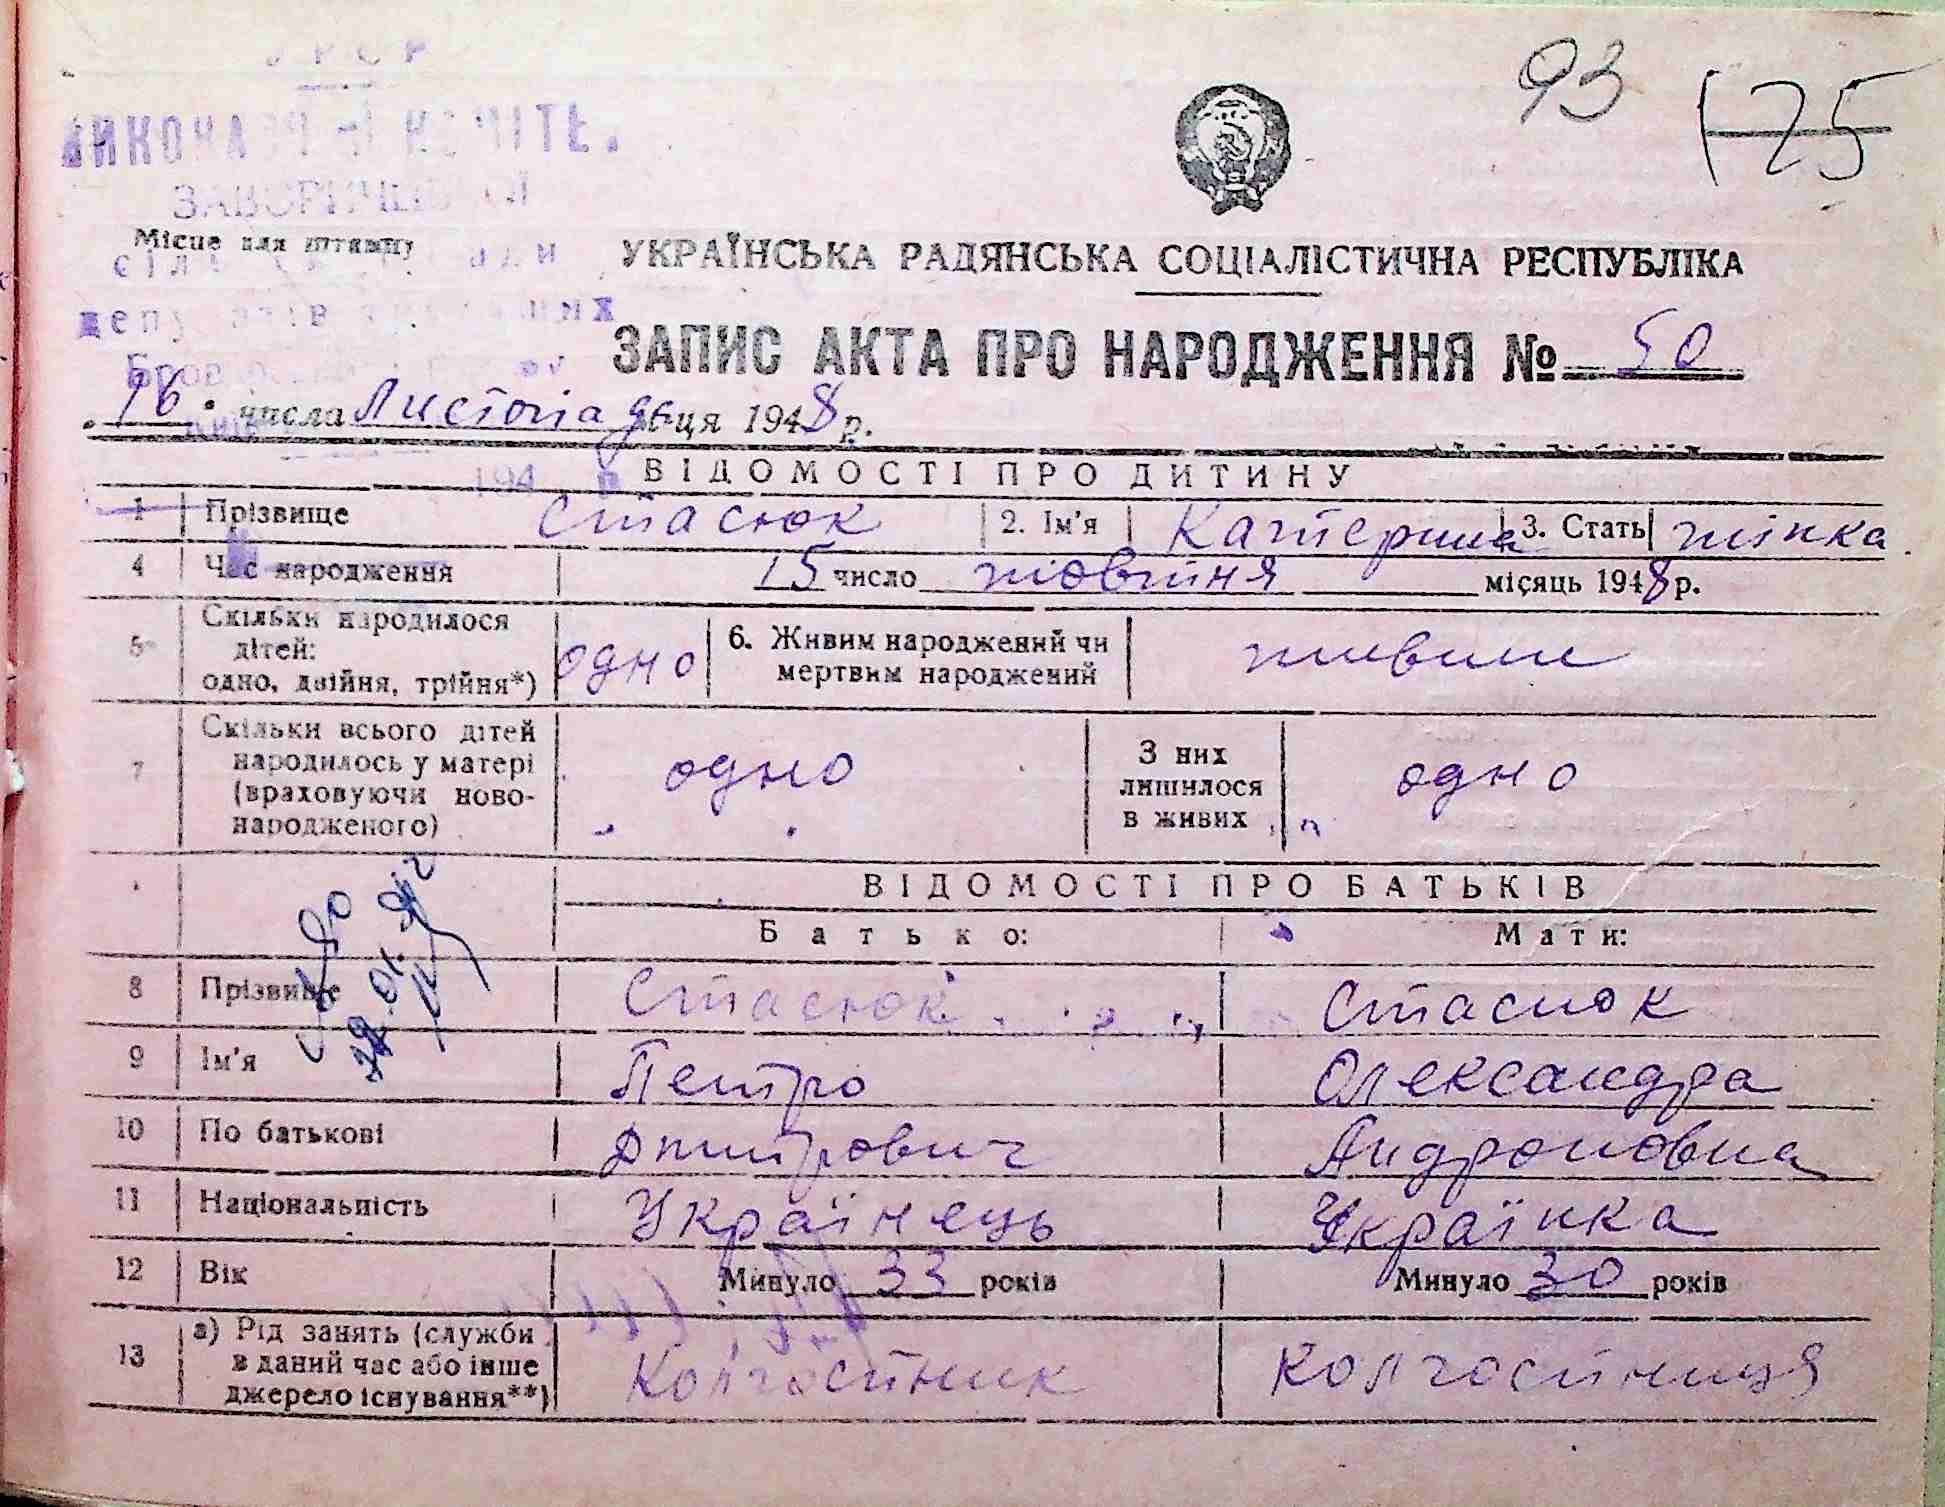 УРСР
93 125
ВИКОНАВЧИЙ КОМІТЕ
Місце для штампу
УКРАЇНСЬКА РАДЯНСЬКА СОЦІАЛІСТИЧНА РЕСПУБЛІКА
депутатів трудящих
ЗАПИС АКТА ПРО НАРОДЖЕННЯ № 50
„16" числа Листопада м-ця 1948 р.
194 р
ВІДОМОСТІ ПРО ДИТИНУ
1 Прізвище Стасюк 2. Ім'я Катерина 3. Стать жінка
4 Час народження 15 число жовтня місяць 1948 р.
5 Скільки народилося дітей: одно, двійня, трійня*) одно 6. Живим народжений чи мертвим народжений живим
7 Скільки всього дітей народилось у матері (враховуючи новонародженого) одно З них лишилося в живих одно
ВІДОМОСТІ ПРО БАТЬКІВ
Батько: Мати:
8 Прізвище Стасюк Стасюк
9 Ім'я Петро Олександра
10 По батькові Дмитрович Андроновна
11 Національність Українець Українка
12 Вік Минуло 33 років Минуло 30 років
13 а) Рід занять (служби в даний час або інше джерело існування**) Колгоспник Колгоспниця